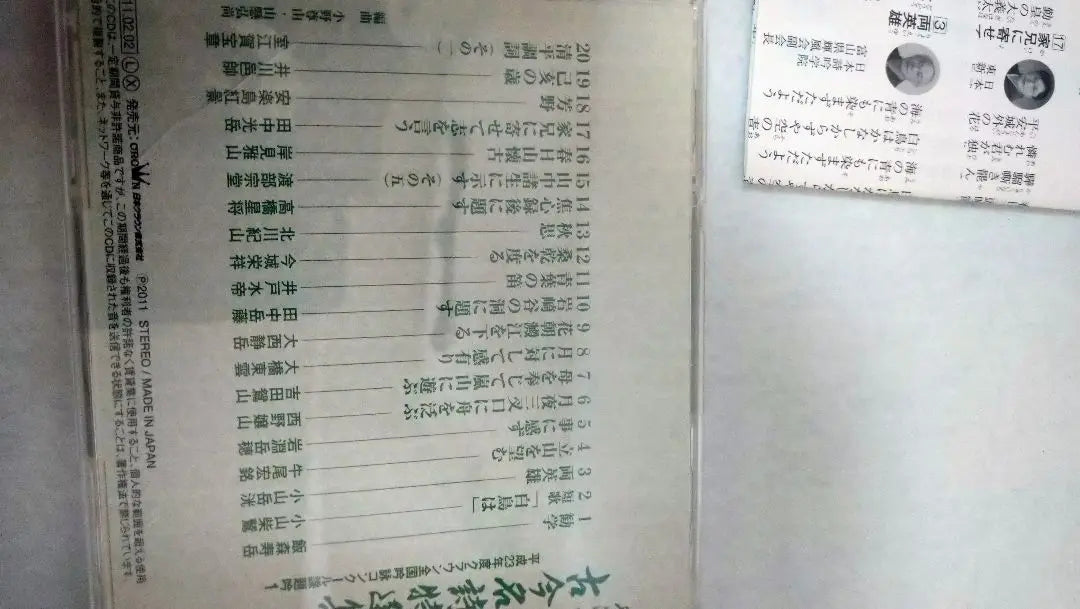 平成23年度クラウン全国吟詠コンクール課題吟 1
古今名詩特選集
1 勧学 飯森寿岳
2 短歌「白鳥は」 小山柴鶯
3 両英雄 小山岳洸
4 立山を望む 牛尾宏銘
5 事に感ず 岩淵岳穂
6 月夜三叉口に舟を泛ぶ 西野嬢山
7 母を奉じて嵐山に遊ぶ 吉田鶯山
8 月に対して感有り 大橋東雲
9 花朝澱江を下る 大西静岳
10 岩崎谷の洞に題す 田中岳藤
11 青葉の笛 井戸水帝
12 桑乾を度る 今城栄祥
13 秋思 北川紀山
14 焦心録後に題す 高橋星将
15 山中諸生に示す(その五) 渡部宗堂
16 春日山懐古 岸見雅山
17 家兄に寄せて志を言う 田中光岳
18 芳野 安楽島紅
19 己亥の歳 井川邑帥
20 清平調詞(その一) 室江賀宝章
編曲 小野尊由・山
11.02.02 Ⓛ Ⓧ 発売元:CROWN 日本クラウン株式会社 Ⓟ2011 STEREO / MADE IN JAPAN
このCDは、一定期間貸与非許諾商品ですが、この期間経過後も権利者の許諾なく賃貸業に使用すること、個人的な範囲を超える使用
目的で複製すること、また、ネットワーク等を通じてこのCDに収録された音を送信できる状態にすることは、著作権法で禁じられています
勤皇の大義太
⑰家兄に寄せ
日本
東新
平安城外の花
憐れむ君が独
③両英雄
富山県輝風会副会長
日本詩吟学院
海の青にも染まずただよう
白鳥はかなしからずや空の青
海の青にも染まずただよう